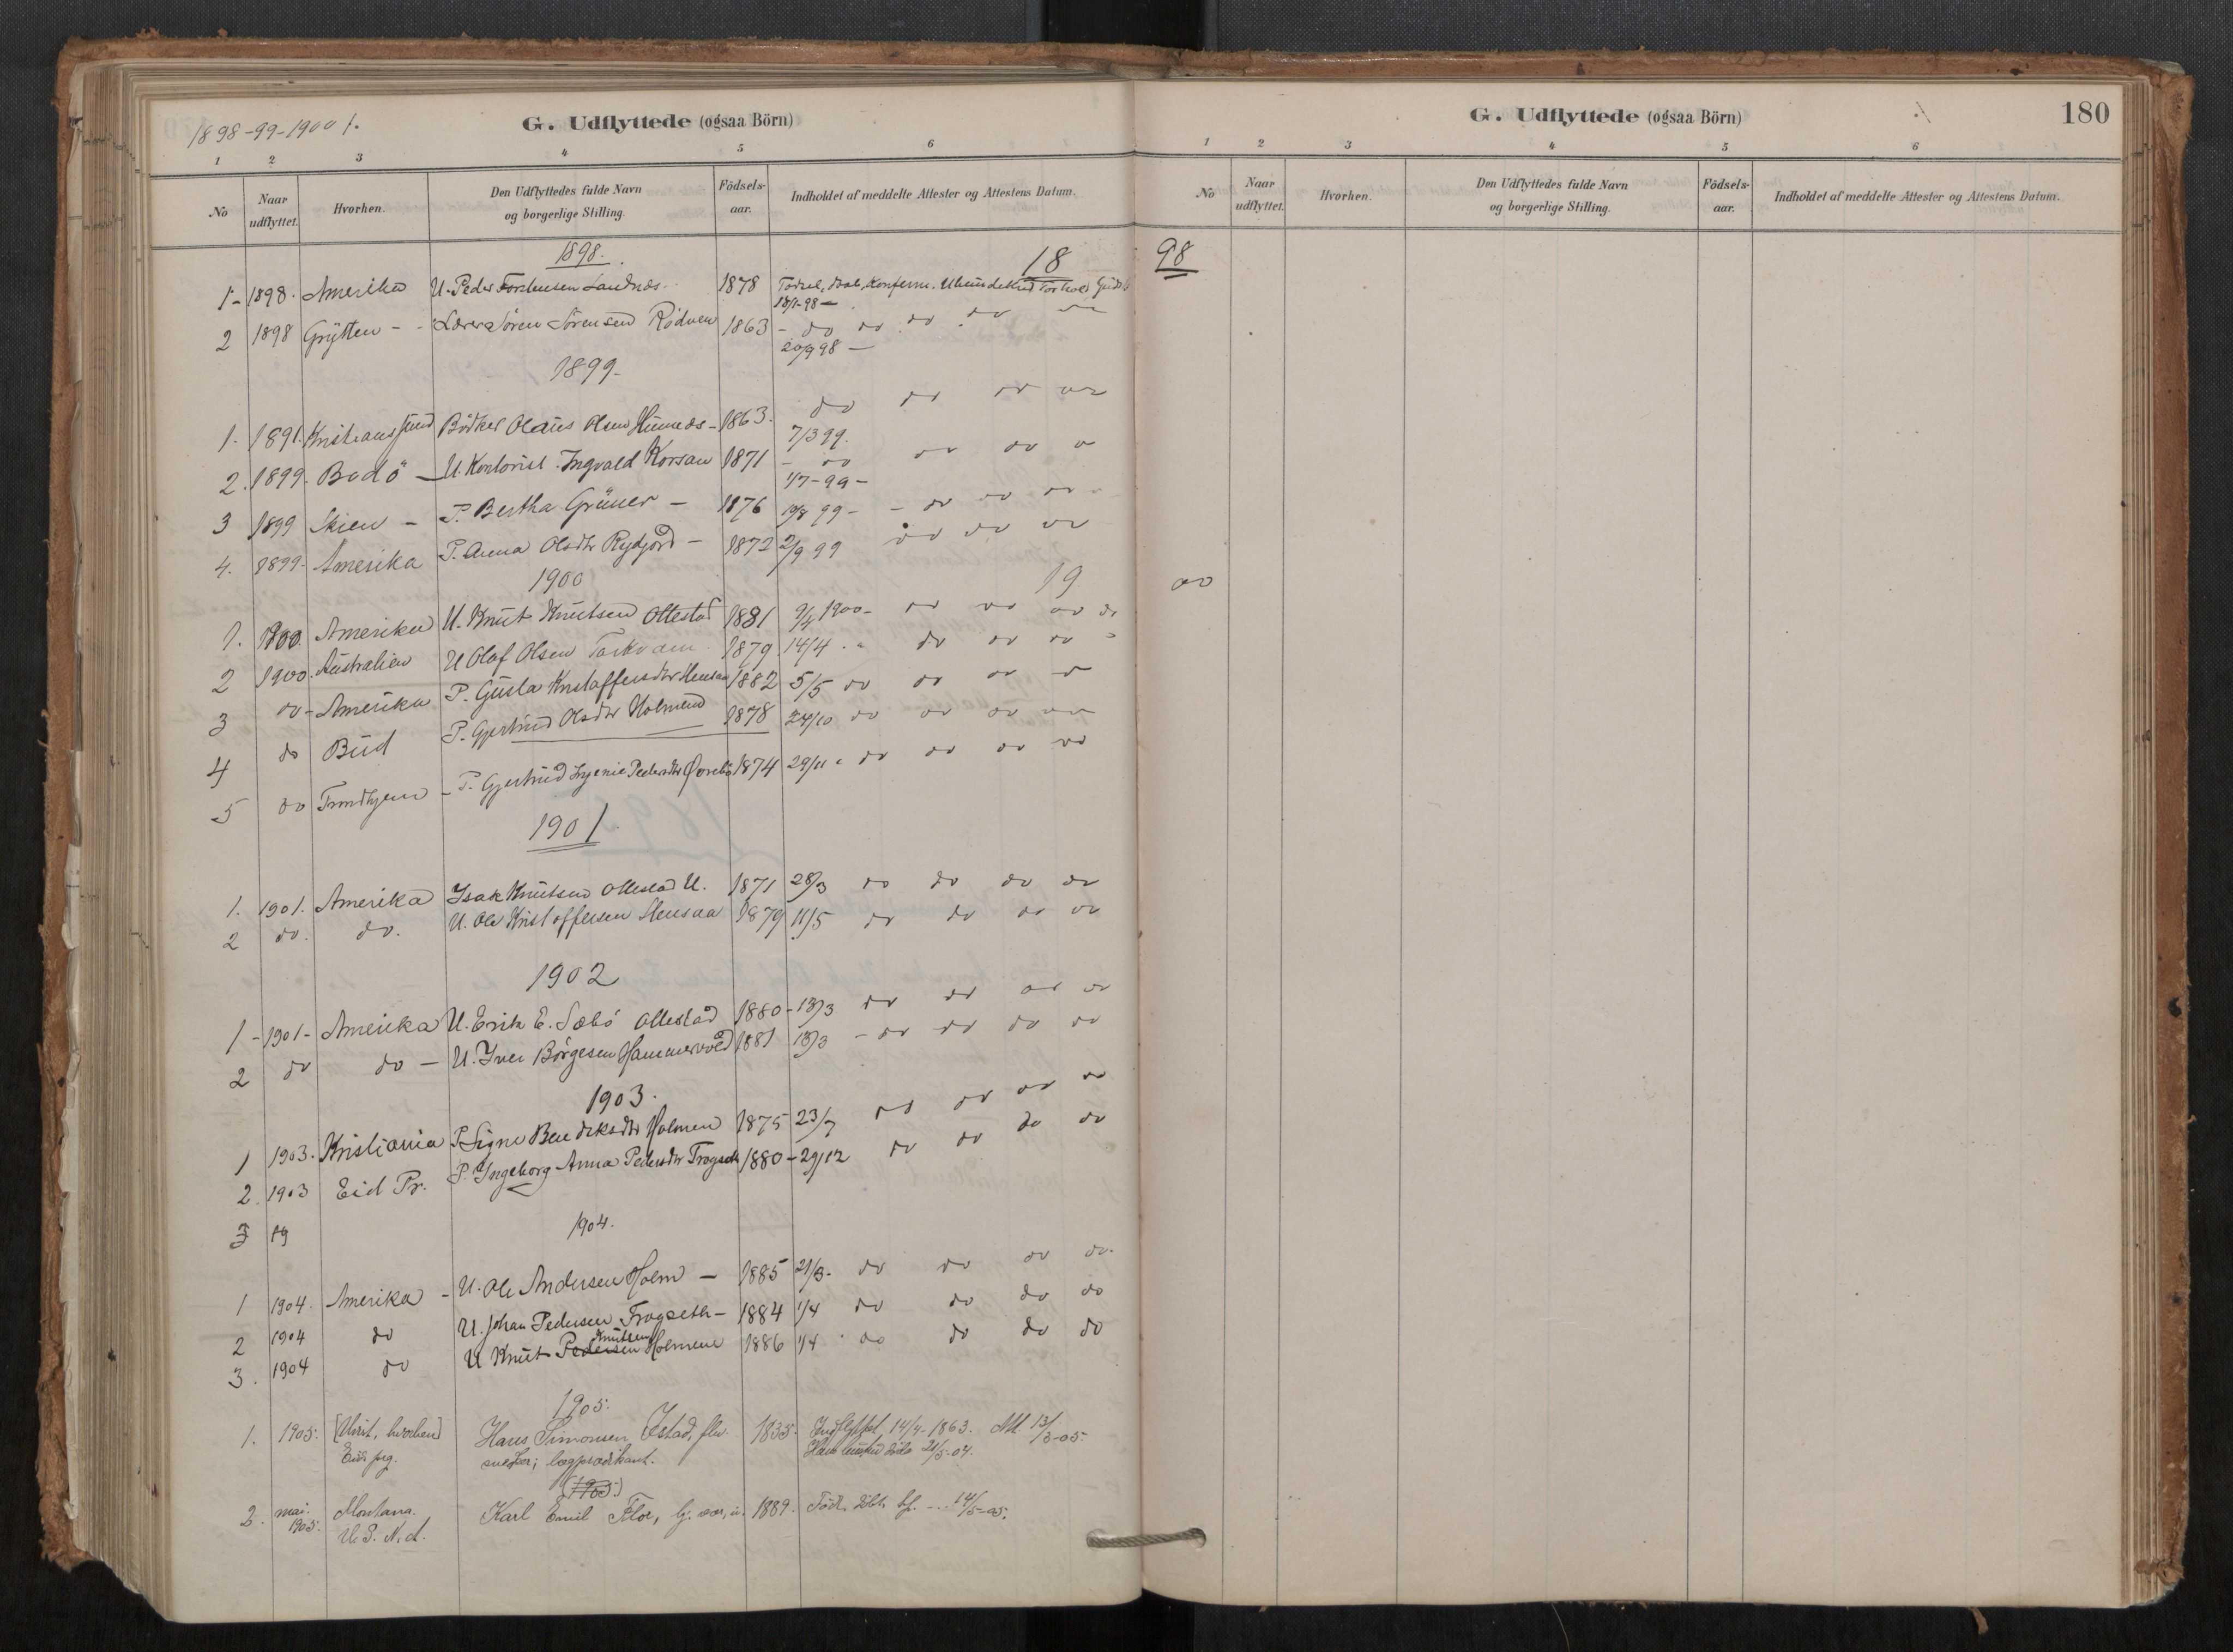 1898-99-1900 1.
G. Udflyttede (ogsaa Börn)
1 2 3 4 5 6
No
Naar udflyttet.
Hvorhen.
Den Udflyttedes fulde Navn og borgerlige Stilling.
Födsels-aar.
Indholdet af meddelte Attester og Attestens Datum.
1898.
18 98
1- 1898. Amerika U. Peder Landnæs. 1878 Födsel, Konferm.
18/1-98-
2 1898 Grytten - Lærer Sören Sörensen Rödven 1863 - do do do do
20/9 98 -
1899-
1. 1891. Kristianssund Bödker Olaus Olsen 1863. do do do do
7/3 99.
2. 1899. Bodö - U. Kontorist Ingvald Korsan 1871 - do do do
1/7-99-
3 1899 Skien - P. Bertha Grüner - 1876 19/8 99 - - do do do
4. 1899- Amerika P. Anna Olsdtr Rydjord - 1872 2/9 99 do do do
1900
19 00
1. 1900. Amerika U. Knut Knutsen Ottestad 1881 9/4 1900- do do do do
2 1900. Australien U Olaf Olsen Torkvam 1879. 14/4 . " do do do
3 do- Amerika P. Gusta Kristoffersdtr 1882 5/5 do do do
4 do Bud P. Gjertrud Olsdtr Holmem 1878 24/10 do do do
5 do Trondhjem - P. Gjertrud Pedersdtr 1874 29/11 " do do do do
1901.
1. 1901. Amerika Isak Knutsen Ottestad U. 1871 28/3 do do do do
2 do. do. U. Ole Kristoffersen Stensaa 1879 11/5 do do do do
1902
1 - 1901- Amerika U. Erik E. Sæbö Ottestad 1880 - 13/3 do do do do
2 do do - U. Iver Börgesen Hammervold 1881 13/3 - do do do do
1903.
1 1903. Kristiania P. Signe Bendiksdtr Holmen 1875 23/7 do do do do
2. 1903 Eid Pr. P. Ingeborg Anna Pedersdtr 1880 - 29/12 do do do do
3 19
1904.
1 1904. Amerika - U. Ole Andersen Holm - 1885 21/3. do do do do.
2 1904 do U. Johan Pedersen Frogseth - 1884 1/4 do do do do
Knutsen
3. 1904 do U Knut Pedersen Holmene 1886 1/4 . do do do do
1905.
1. 1905. Hans Simonsen 1835. Indflyttet 14/4-1863. Att. 13/3-05.
Eids prg. snedker; lægprædikant. 21/5-04.
(1905.)
2. mai. Montana. Karl Emil Flor, 1889. Födt, döbt, kf. - .. 14/5-05.
1905. U. S. N. A.
G. Udflyttede (ogsaa Börn)
180
1 2 3 4 5 6
No
Naar udflyttet.
Hvorhen.
Den Udflyttedes fulde Navn og borgerlige Stilling.
Födsels-aar.
Indholdet af meddelte Attester og Attestens Datum.